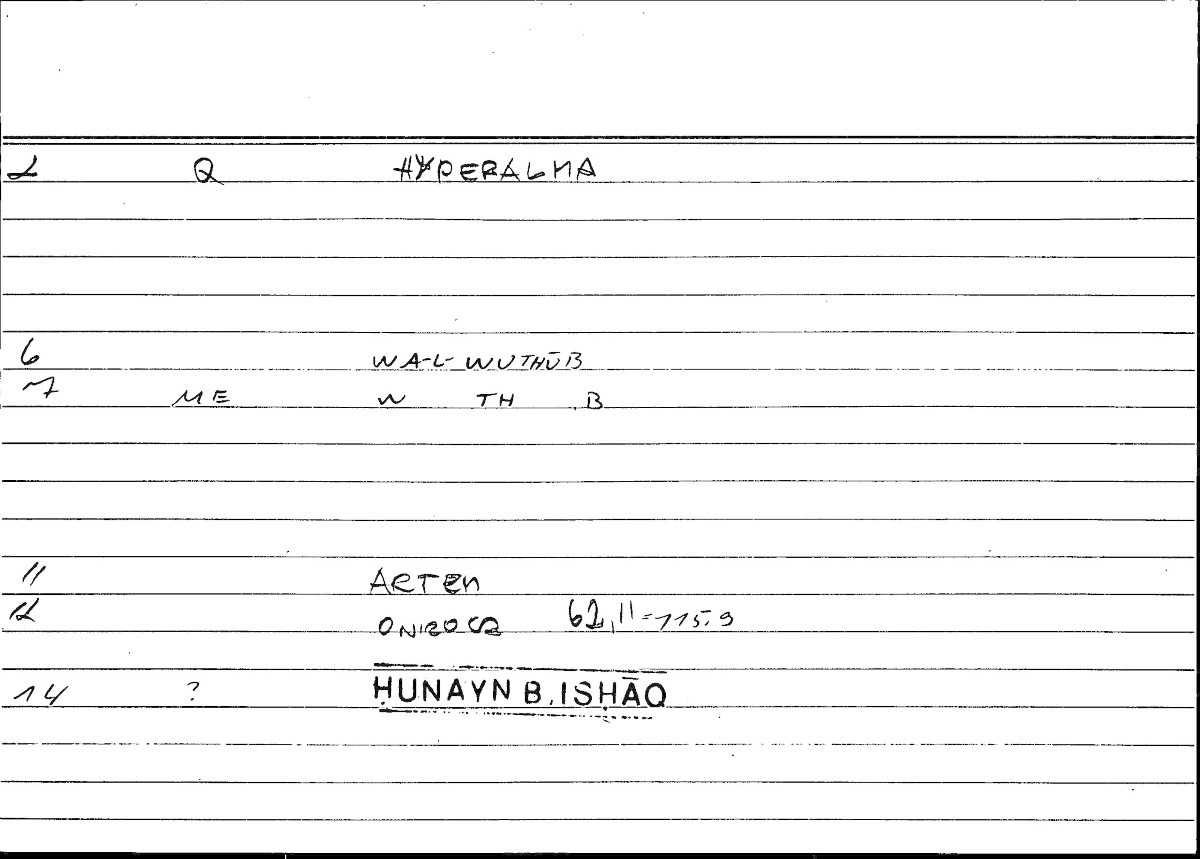 2 Q HYPERALMA
6 WA-L-WUTHŪB
7 ME W TH B
11 ARTEM
12 ONIROCR 62,11=115.9
14 ? ḤUNAYN B. ISḤĀQ